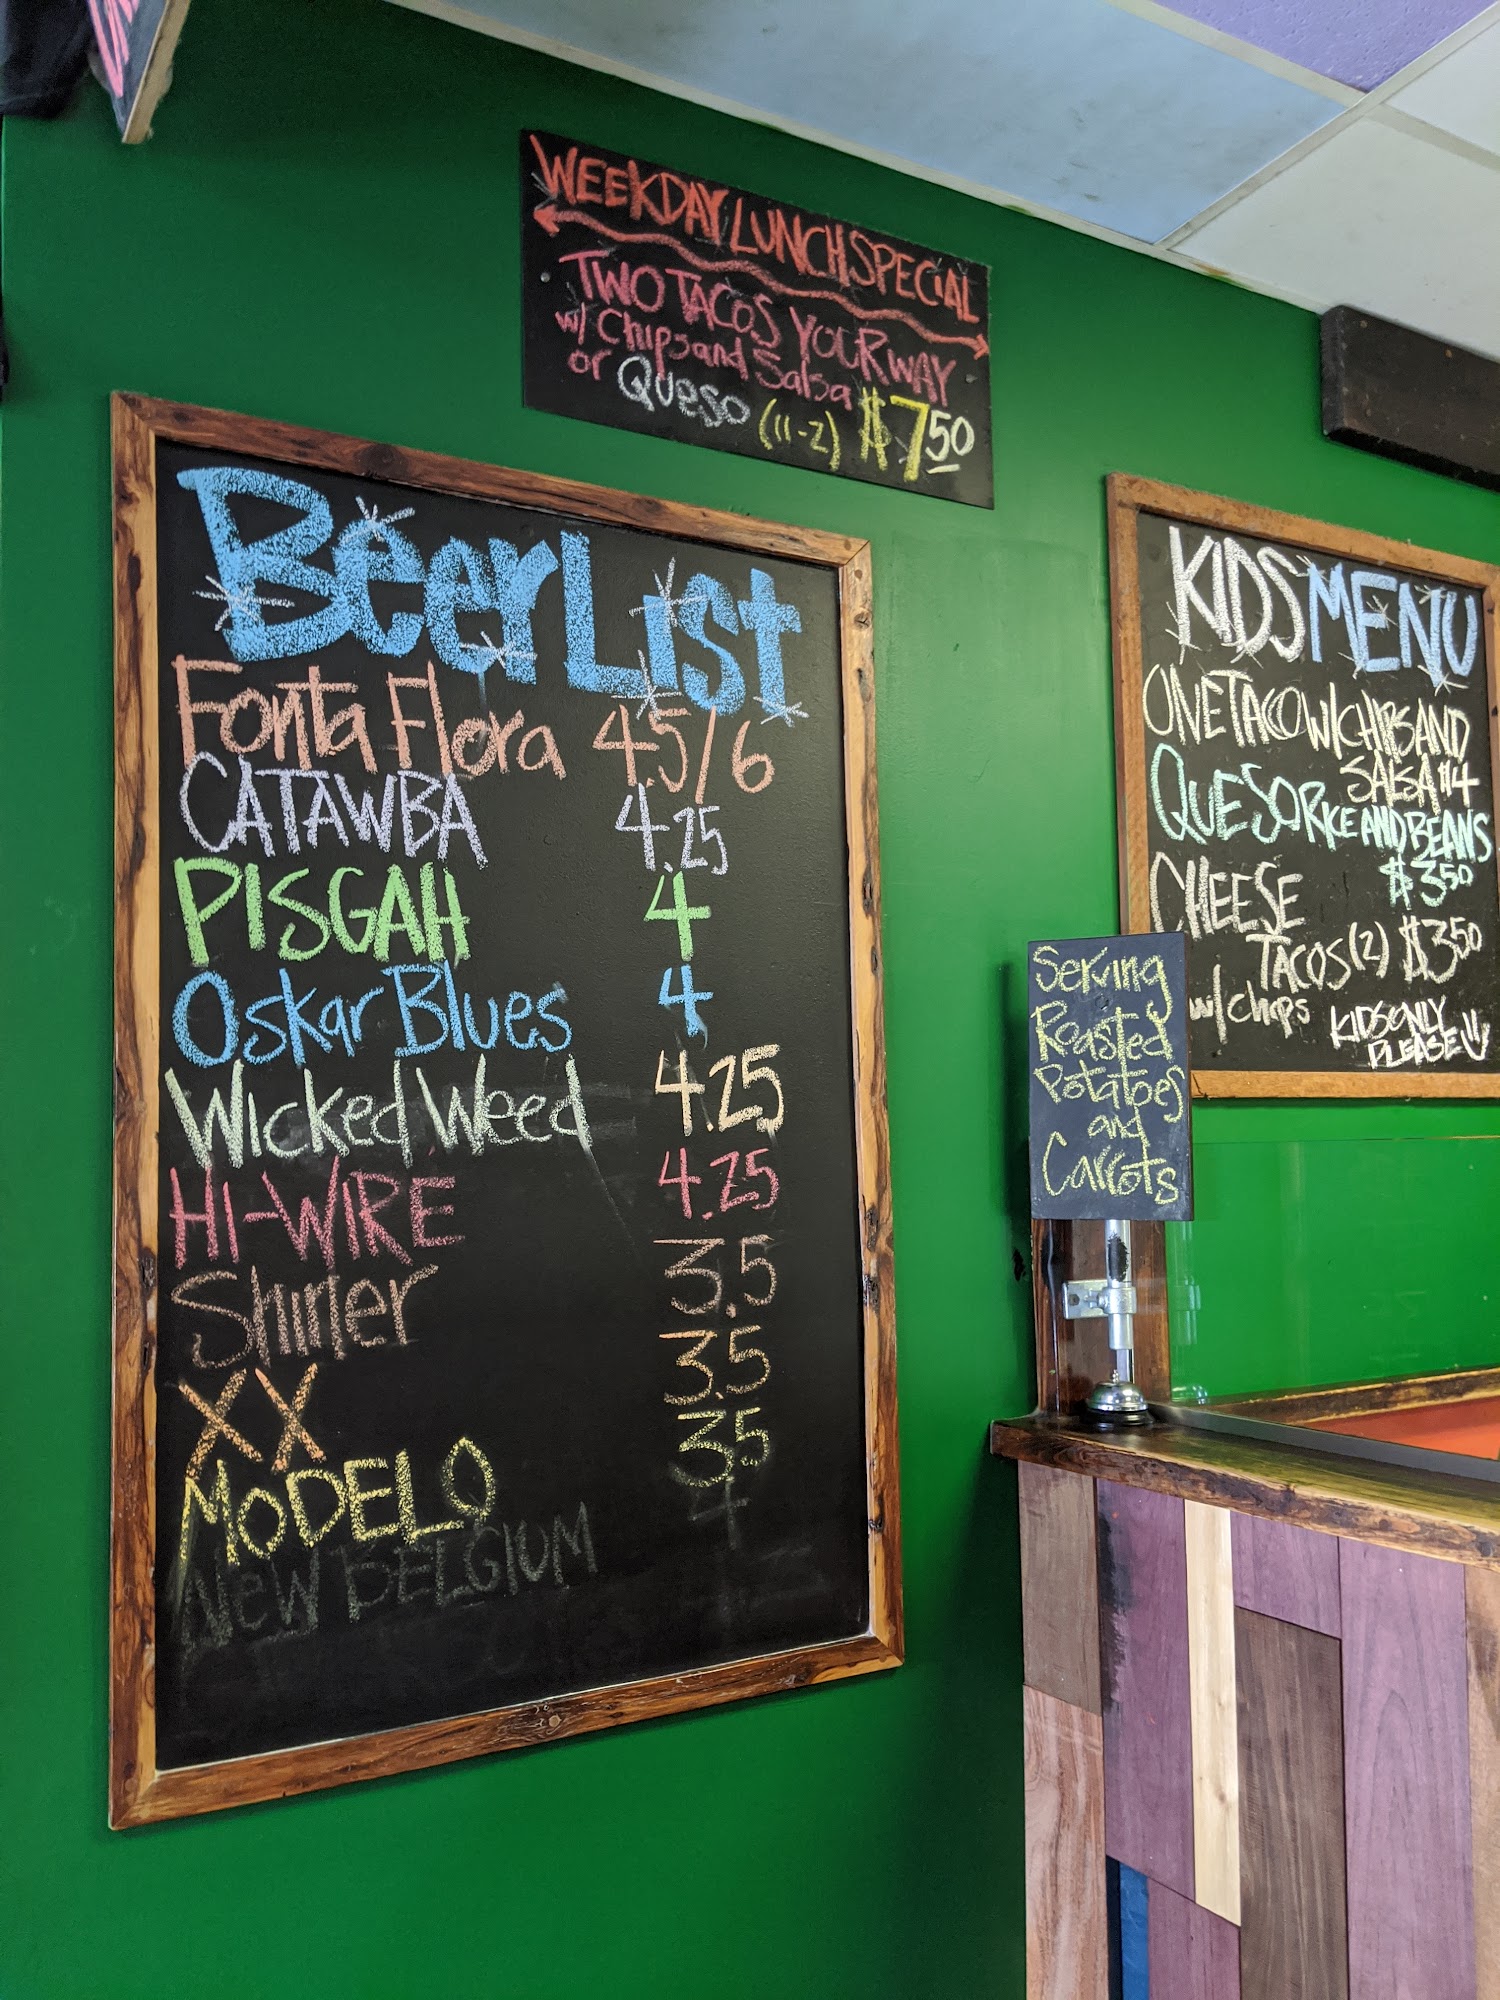 WEEKDAY LUNCH SPECIAL
TWO TACOS YOUR WAY
w/ Chips and Salsa
or Queso (11-2) $7.50
Beer List
Fonta Flora 4.5/6
CATAWBA 4.25
PISGAH 4
Oskar Blues 4
Wicked Weed 4.25
HI-WIRE 4.25
Shiner 3.5
XX 3.5
MODELO 3.5
NEW BELGIUM 4
KIDS MENU
ONE TACO W/ CHIPS AND
SALSA $4
QUESO RICE AND BEANS
$3.50
CHEESE
TACOS (2) $3.50
w/ chips
KIDS ONLY
PLEASE
Serving
Roasted
Potatoes
and
Carrots